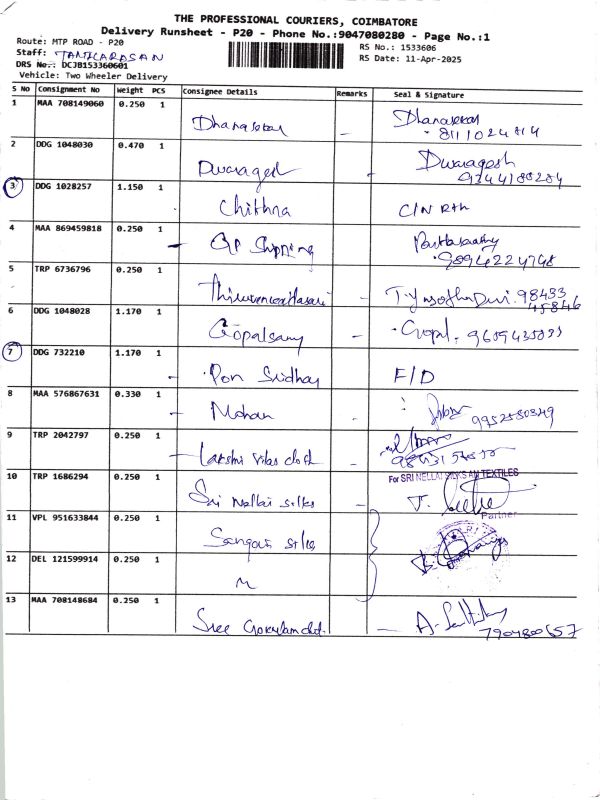 THE PROFESSIONAL COURIERS, COIMBATORE
Delivery Runsheet - P20 - Phone No.:9047080280 - Page No.:1
Route: MTP ROAD - P20
RS No.: 1533606
Staff: TAMILARASAN
RS Date: 11-Apr-2025
DRS No.: DCJB153360601
Vehicle: Two Wheeler Delivery
S No Consignment No Weight PCS Consignee Details Remarks Seal & Signature
1 MAA 708149060 0.250 1 Dhanasekar - Dhanasekar
8111024814
2 DDG 1048030 0.470 1 Dwaragesh - Dwaragesh
9244188284
3 DDG 1028257 1.150 1 Chithra C/N Rtn
4 MAA 869459818 0.250 1 GP Shipping Parthasarathy
9894224748
5 TRP 6736796 0.250 1 - 98433
45846
6 DDG 1048028 1.170 1 Gopalsamy - Gopal.
7 DDG 732210 1.170 1 - Pon Sridhar F/D
8 MAA 576867631 0.330 1 - Mohan -
9 TRP 2042797 0.250 1 - Lakshmi vilas cloth -
10 TRP 1686294 0.250 1 Sri Nellai silks - For SRI NELLAI SILKS AN TEXTILES
Partner
11 VPL 951633844 0.250 1 silks
12 DEL 121599914 0.250 1 "
13 MAA 708148684 0.250 1 Sree Gokulam -